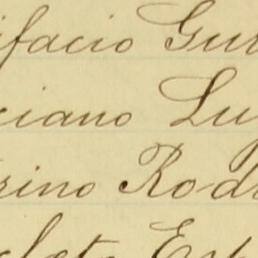 ifacio Gur
ciano Lu
rino Rod
cleto Esp